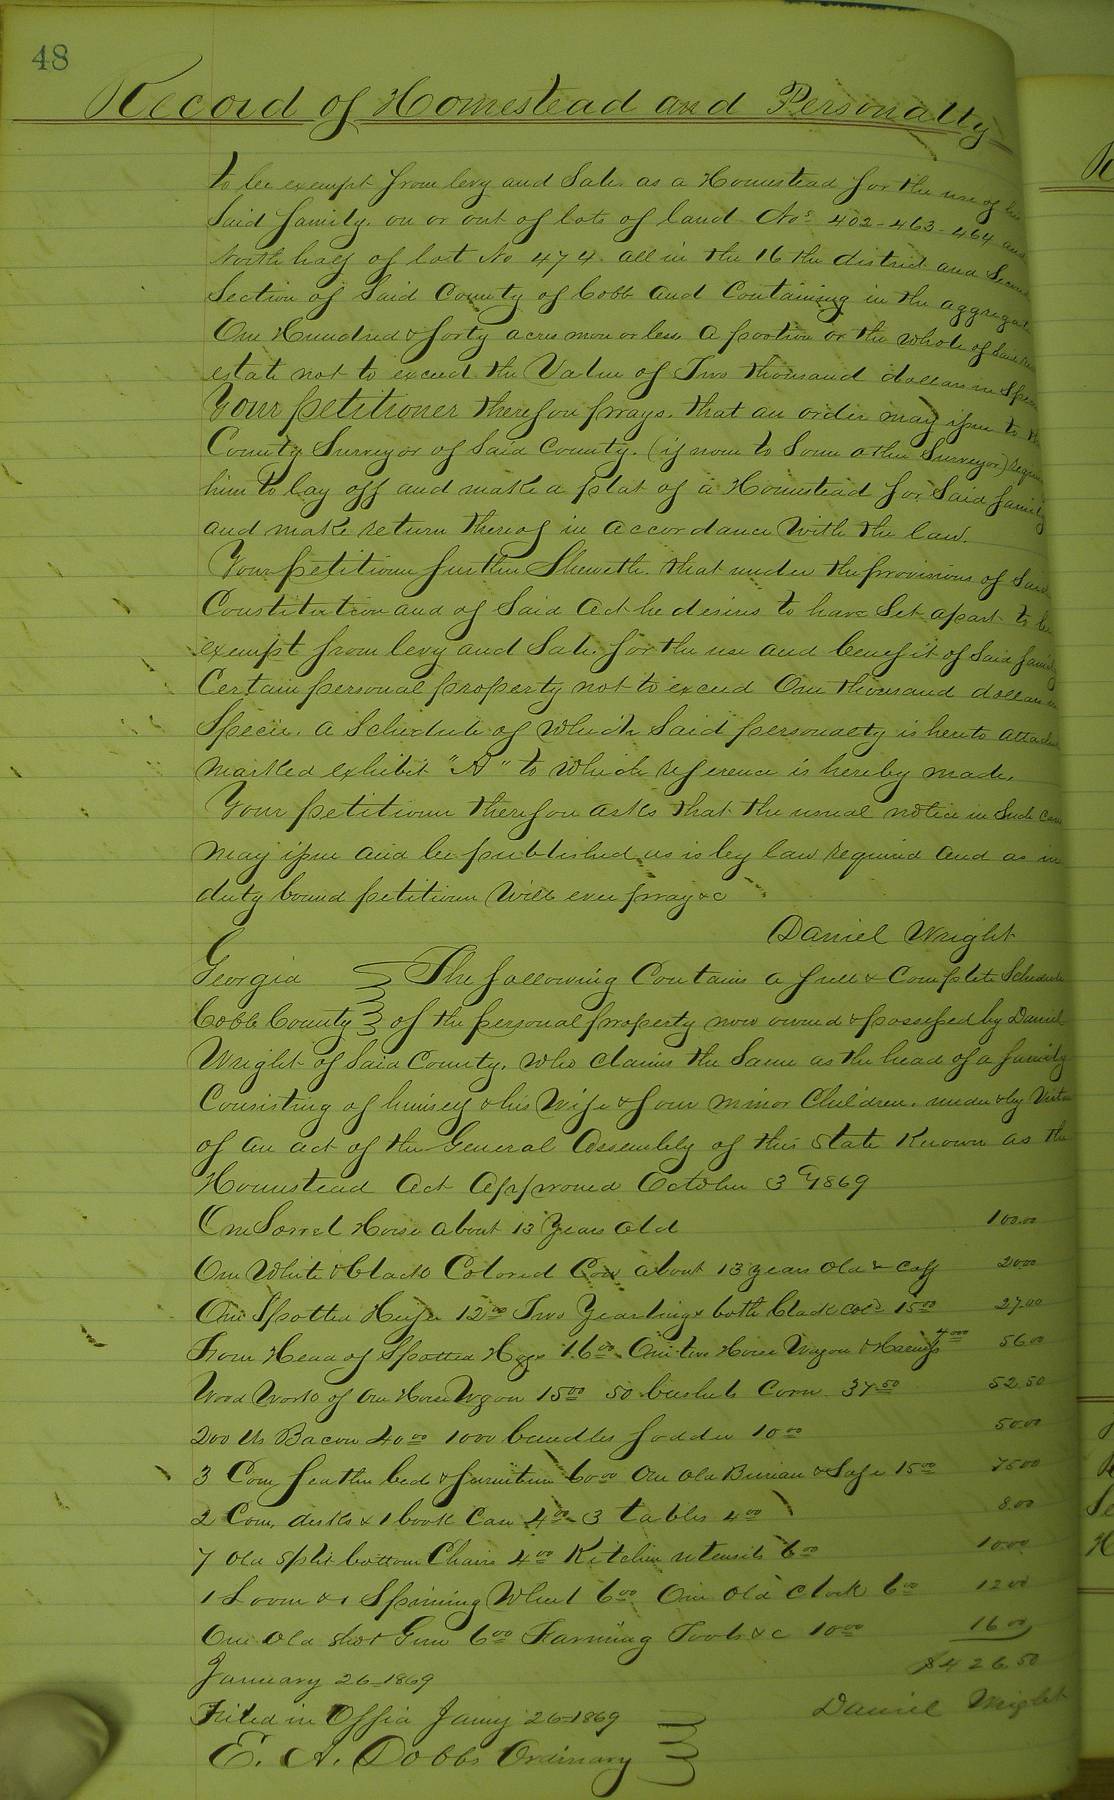 48
Record of Homestead and Personalty
to be exempt from levy and Sale. as a Homestead for the use of his
Said family. on or out of lots of land Nos 402-463-464 and
North half of lot No 474. all in the 16 the district and Second
Section of Said County of Cobb and Containing in the aggregate
One Hundred & forty acres more or less. a portion or the whole of Said real
estate not to exceed the Value of Two thousand dollars in Specie
Your petitioner therefore prays. that an order may issue to the
County Surveyor of Said County. (if none to Some other Surveyor) requiring
him to lay off and make a plat of a Homestead for Said family
and make return thereof in accordance With the law.
Your petitioner further Sheweth. that under the provisions of Said
Constitution and of Said act he desires to have Set apart to be
exempt from levy and Sale. for the use and benefit of Said family
Certain personal property not to exceed One thousand dollars in
Specie. a Schedule of which Said personalty is hereto attached
marked exhibit "A" to which reference is hereby made.
Your petitioner therefore asks that the usual notice in Such case
may issue and be published as is by law required and as in
duty bound petitioner Will ever pray &c
Daniel Wright
Georgia The following Contains a full & Complete Schedule
Cobb County of the personal property now owned & possessed by Daniel
Wright of Said County. who claims the Same as the head of a family
Consisting of himself & his Wife & four minor Children. under & by Virtue
of an act of the General Assembly of this State Known as the
Homestead Act Approved October 3d 1869
One Sorrel Horse about 13 Years old 100.00
One White & black Colored Cow about 13 years old & calf 20.00
One Spotted Heifer 12.00 Two Yearlings both black cold 15.00 27.00
Four Head of Spotted Hogs 16.00 One two Horse Wagon & Harness 40.00 56.00
Wood Work of One Horse Wgon 15.00 50 bushels Corn 37.50 52.50
200 lbs Bacon 40.00 1000 bundles fodder 10.00 50.00
3 Com feather beds & furniture 60.00 One Old Bureau & Safe 15.00 75.00
2 Com. desks & 1 book Case 4.00 3 tables 4.00 8.00
7 Old Split bottom Chairs 4.00 Kitchen utensils 6.00 10.00
1 Loom & 1 Spinning Wheel 6.00 One Old Clock 6.00 12.00
One Old Shot Gun 6.00 Farming Tools &c 10.00 16.00
January 26-1869 $426.50
Filed in Office Jany 26-1869 Daniel Wright
E. A. Dobbs Ordinary